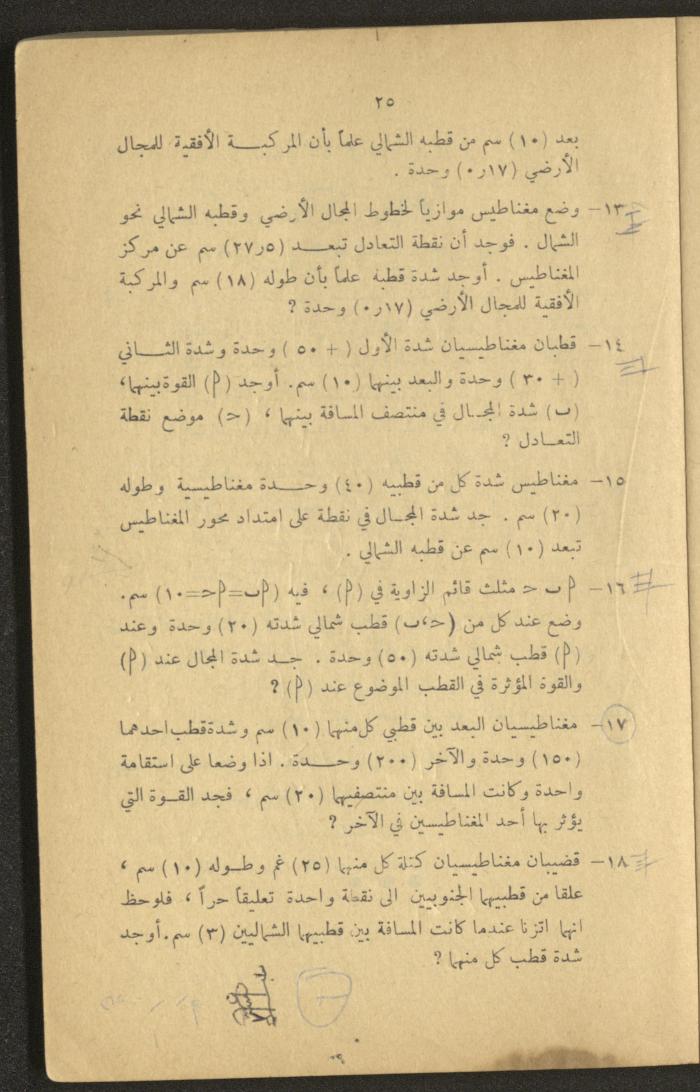 ٢٥
بعد (١٠) سم من قطبه الشمالي علماً بأن المركبة الأفقية للمجال
الأرضي (١٧ر٠) وحدة .
١٣– وضع مغناطيس موازياً لخطوط المجال الأرضي وقطبه الشمالي نحو
الشمال . فوجد أن نقطة التعادل تبعد (٥ر٢٧) سم عن مركز
المغناطيس . أوجد شدة قطبه علماً بأن طوله (١٨) سم والمركبة
الأفقية للمجال الأرضي (١٧ر٠) وحدة ؟
١٤– قطبان مغناطيسيان شدة الأول (+ ٥٠) وحدة وشدة الثاني
(+ ٣٠) وحدة والبعد بينهما (١٠) سم. أوجد (P) القوة بينهما،
(ب) شدة المجال في منتصف المسافة بينهما ، (ح) موضع نقطة
التعادل ؟
١٥– مغناطيس شدة كل من قطبيه (٤٠) وحدة مغناطيسية وطوله
(٢٠) سم . جد شدة المجال في نقطة على امتداد محور المغناطيس
تبعد (١٠) سم عن قطبه الشمالي .
١٦– P ب ح مثلث قائم الزاوية في (P) ، فيه (Pب=Pح=١٠) سم.
وضع عند كل من (ح،ب) قطب شمالي شدته (٢٠) وحدة وعند
(P) قطب شمالي شدته (٥٠) وحدة . جد شدة المجال عند (P)
والقوة المؤثرة في القطب الموضوع عند (P) ؟
١٧– مغناطيسيان البعد بين قطبي كل منهما (١٠) سم وشدة قطب احدهما
(١٥٠) وحدة والآخر (٢٠٠) وحدة . اذا وضعا على استقامة
واحدة وكانت المسافة بين منتصفيهما (٢٠) سم ، فجد القوة التي
يؤثر بها أحد المغناطيسين في الآخر ؟
١٨– قضيبان مغناطيسيان كتلة كل منهما (٢٥) غم وطوله (١٠) سم ،
علقا من قطبيهما الجنوبيين الى نقطة واحدة تعليقاً حراً ، فلوحظ
انهما اتزنا عندما كانت المسافة بين قطبيهما الشماليين (٣) سم. أوجد
شدة قطب كل منهما ؟